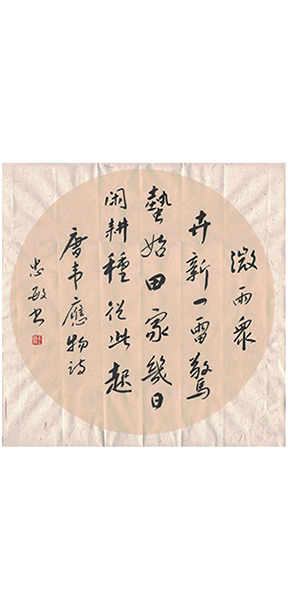 微雨衆
卉新一雷驚
蟄始田家幾日
闲耕種從此起
唐韦應物诗
忠敏书